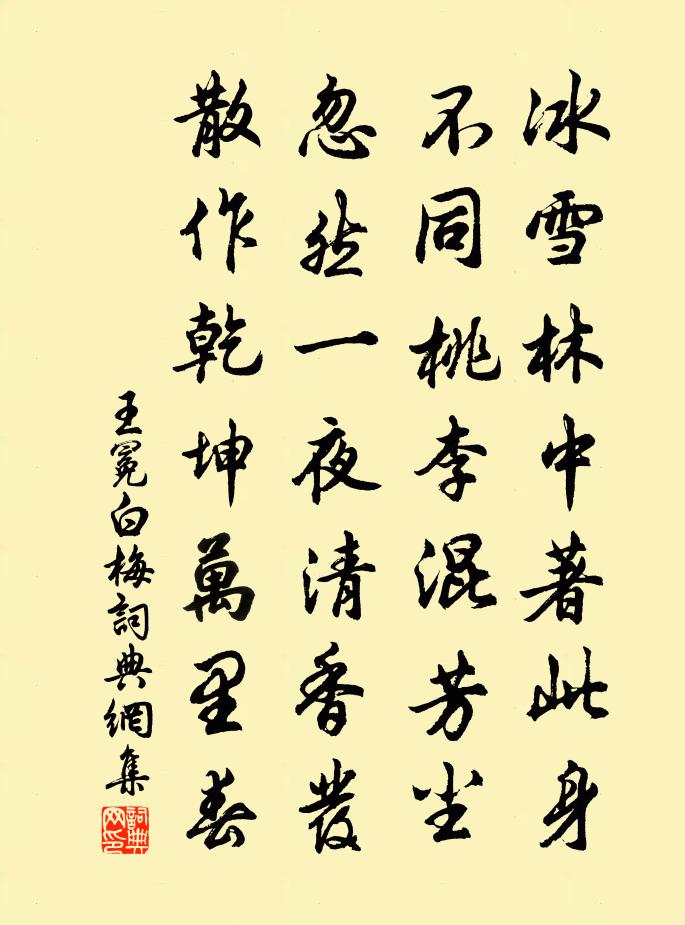 冰雪林中著此身
不同桃李混芳尘
忽然一夜清香發
散作乾坤萬里春
王冕白梅詞典網集
詞典網印